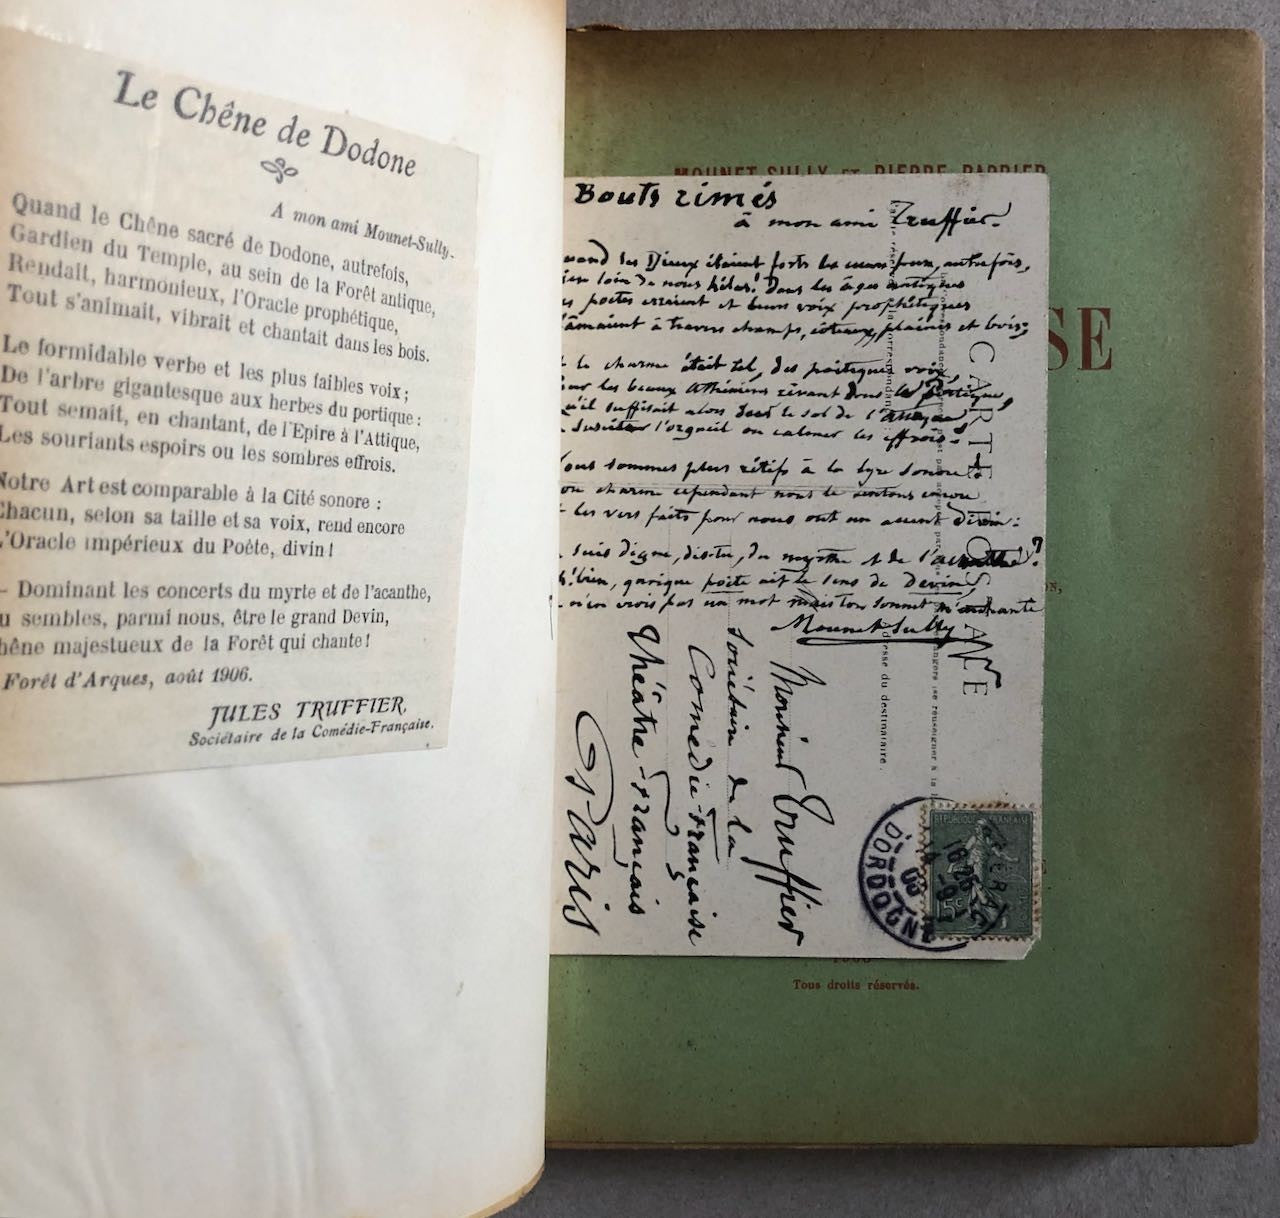 Le Chêne de Dodone
A mon ami Mounet-Sully.
Quand le Chêne sacré de Dodone, autrefois,
Gardien du Temple, au sein de la Forêt antique,
Rendait, harmonieux, l'Oracle prophétique,
Tout s'animait, vibrait et chantait dans les bois.
Le formidable verbe et les plus faibles voix ;
De l'arbre gigantesque aux herbes du portique :
Tout semait, en chantant, de l'Epire à l'Attique,
Les souriants espoirs ou les sombres effrois.
Notre Art est comparable à la Cité sonore :
Chacun, selon sa taille et sa voix, rend encore
L'Oracle impérieux du Poête, divin !
— Dominant les concerts du myrte et de l'acanthe,
u sembles, parmi nous, être le grand Devin,
hêne majestueux de la Forêt qui chante !
Forêt d'Arques, août 1906.
JULES TRUFFIER,
Sociétaire de la Comédie-Française.
MOUNET-SULLY ET PIERRE BARBIER
SE
Bouts rimés
à mon ami Truffier.
uand les Dieux étaient forts les cœurs purs, autrefois,
ien loin de nous hélas! Dans les âges antiques
es poètes erraient et leurs voix prophétiques
à travers champs, côteaux, plaines et bois;
le charme était tel, des poétiques voix,
our les beaux Athéniens rêvant sous le Portique,
u'il suffisait alors sur le sol de l'Attique
susciter l'orgueil ou calmer les effrois!
ous sommes plus rétifs à la lyre sonore
on charme cependant nous le sentons encore
t les vers faits pour nous ont un accent divin:
suis digne, dis-tu, du myrthe et de l'acanthe?
h! bien, quoique poète ait le sens de Devin,
n'en crois pas un mot mais ton sonnet m'enchante
Mounet Sully
CARTE POSTALE
Monsieur Truffier
Sociétaire de la
Comédie-Française
Théâtre-Français
Paris
REPUBLIQUE FRANÇAISE
15c
BERGERAC
DORDOGNE
Tous droits réservés.